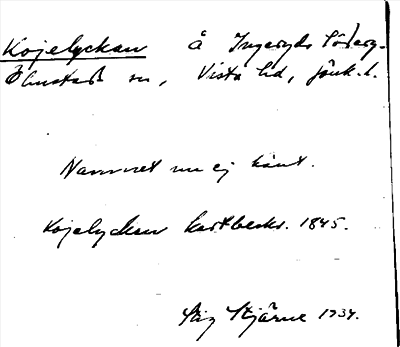 Kojelyckan å Ingeryds Söderg.
Ölmstads sn, Vista hd, Jönk. l.
Namnet nu ej känt.
Kojelyckan kartbeskr. 1845.
Stig Stjärne 1934.